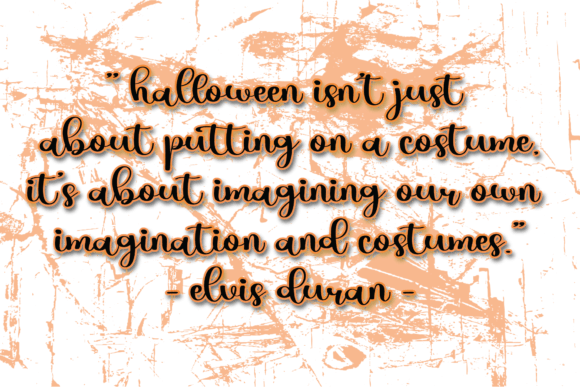 " halloween isn't just
about putting on a costume,
it's about imagining our own
imagination and costumes."
- elvis duran -